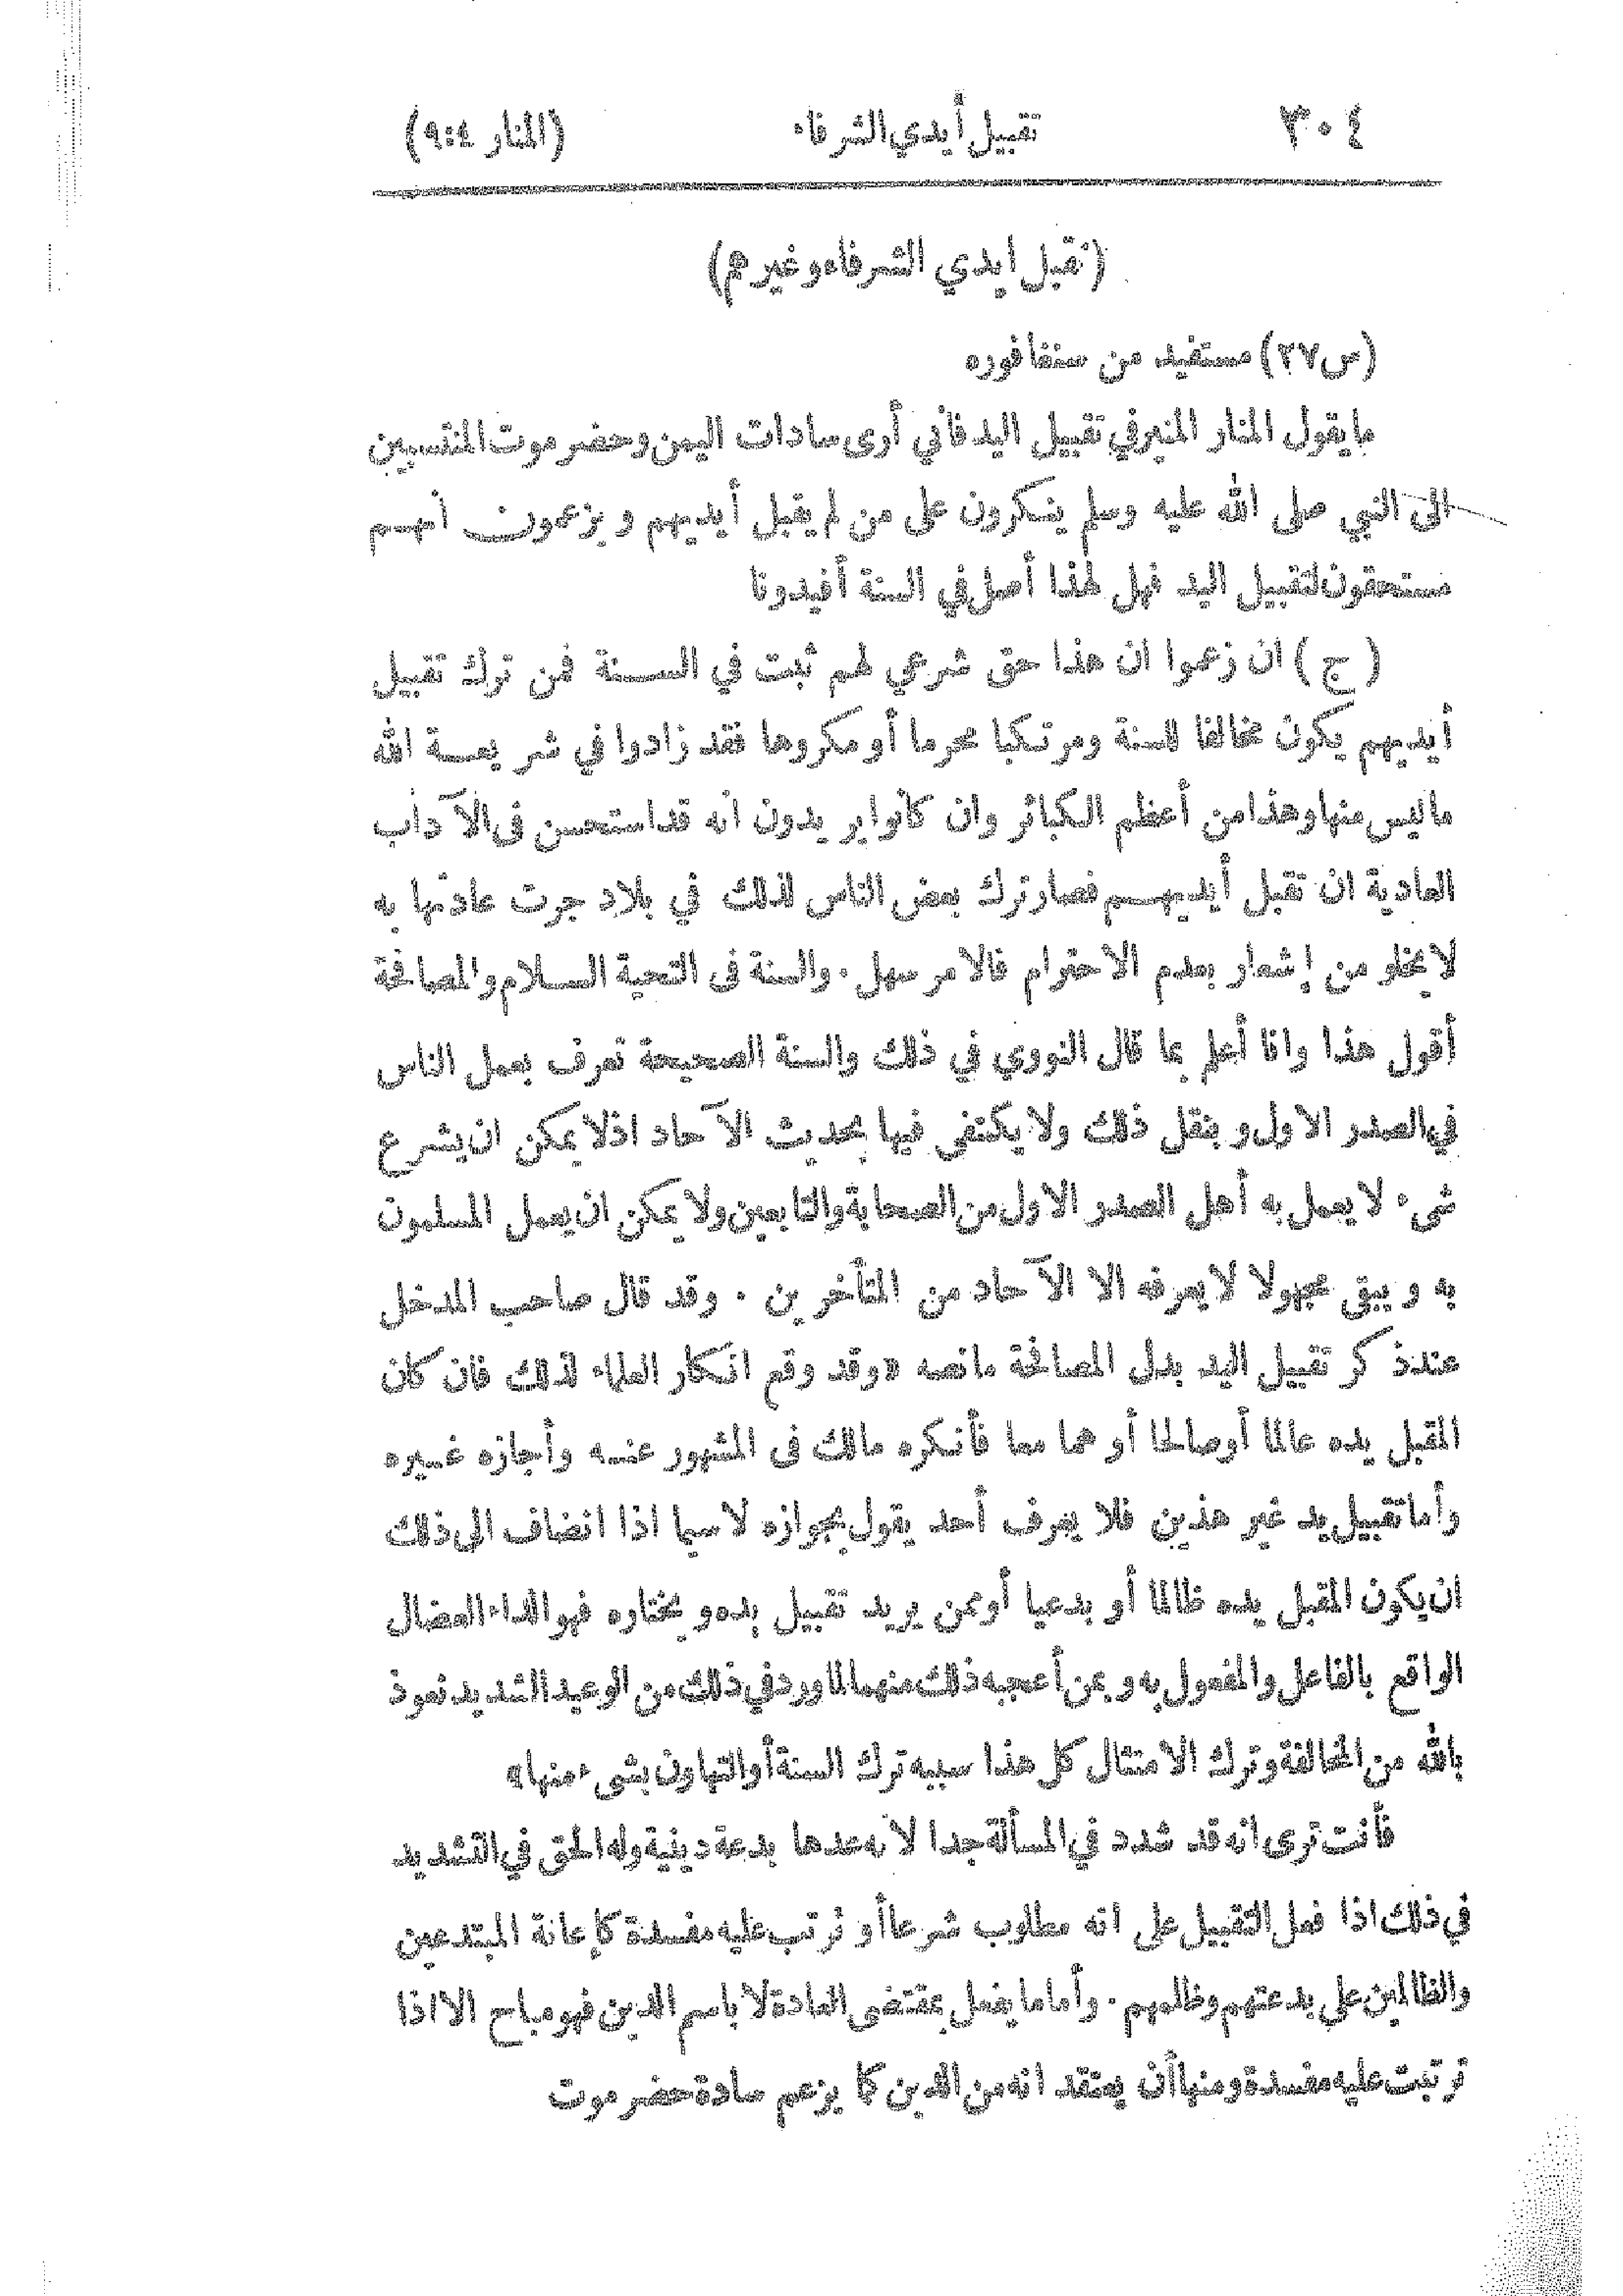 ٣٠٤ تقبيل أيدي الشرفاء (المنار ٩:٤)
(تقبل ايدي الشرفاء وغيرهم)
(س٢٧) مستفيد من سنغافوره
ما يقول المنار المنير في تقبيل اليد فاني أرى سادات اليمن وحضرموت المنتسبين
الى النبي صلى الله عليه وسلم ينكرون على من لم يقبل أيديهم ويزعمون انهم
مستحقون لتقبيل اليد فهل لهذا أصل في السنة أفيدونا
(ج) ان زعموا ان هذا حق شرعي لهم ثبت في السنة فمن ترك تقبيل
أيديهم يكون مخالفا للسنة ومرتكبا محرما أو مكروها فقد زادوا في شريعة الله
ما ليس منها وهذا من أعظم الكبائر وان كانوا يريدون انه قد استحسن فى الآداب
العادية ان تقبل أيديهم فصار ترك بعض الناس لذلك في بلاد جرت عادتها به
لا يخلو من إشعار بعدم الاحترام فالامر سهل . والسنة فى التحية السلام والمصافحة
أقول هذا وانا أعلم بما قال النووي في ذلك والسنة الصحيحة تعرف بعمل الناس
في الصدر الاول وبنقل ذلك ولا يكتفى فيها بحديث الآحاد اذ لا يمكن ان يشرع
شيء لا يعمل به أهل الصدر الاول من الصحابة والتابعين ولا يمكن ان يعمل المسلمون
به ويبقى مجهولا لا يعرفه الا الآحاد من المتأخرين . وقد قال صاحب المدخل
عند ذكر تقبيل اليد بدل المصافحة ما نصه «وقد وقع انكار العلماء لذلك فان كان
المقبل يده عالما أو صالحا أو هما معا فأنكره مالك فى المشهور عنه وأجازه غيره
وأما تقبيل يد غير هذين فلا يعرف أحد يقول بجوازه لا سيما اذا انضاف الى ذلك
ان يكون المقبل يده ظالما أو بدعيا أو ممن يريد تقبيل يده ويختاره فهو الداء العضال
الواقع بالفاعل والمفعول به وبمن أعجبه ذلك منهما لما ورد في ذلك من الوعيد الشديد نعوذ
بالله من المخالفة وترك الامتثال كل هذا سببه ترك السنة أو التهاون بشيء منها»
فأنت ترى انه قد شدد في المسألة جدا لانه عدها بدعة دينية وله الحق في التشديد
في ذلك اذا فعل التقبيل على انه مطلوب شرعا أو ترتب عليه مفسدة كإعانة المبتدعين
والظالمين على بدعتهم وظلمهم . وأما ما يفعل بمقتضى العادة لا باسم الدين فهو مباح الا اذا
ترتبت عليه مفسدة ومنها أن يعتقد انه من الدين كما يزعم سادة حضرموت